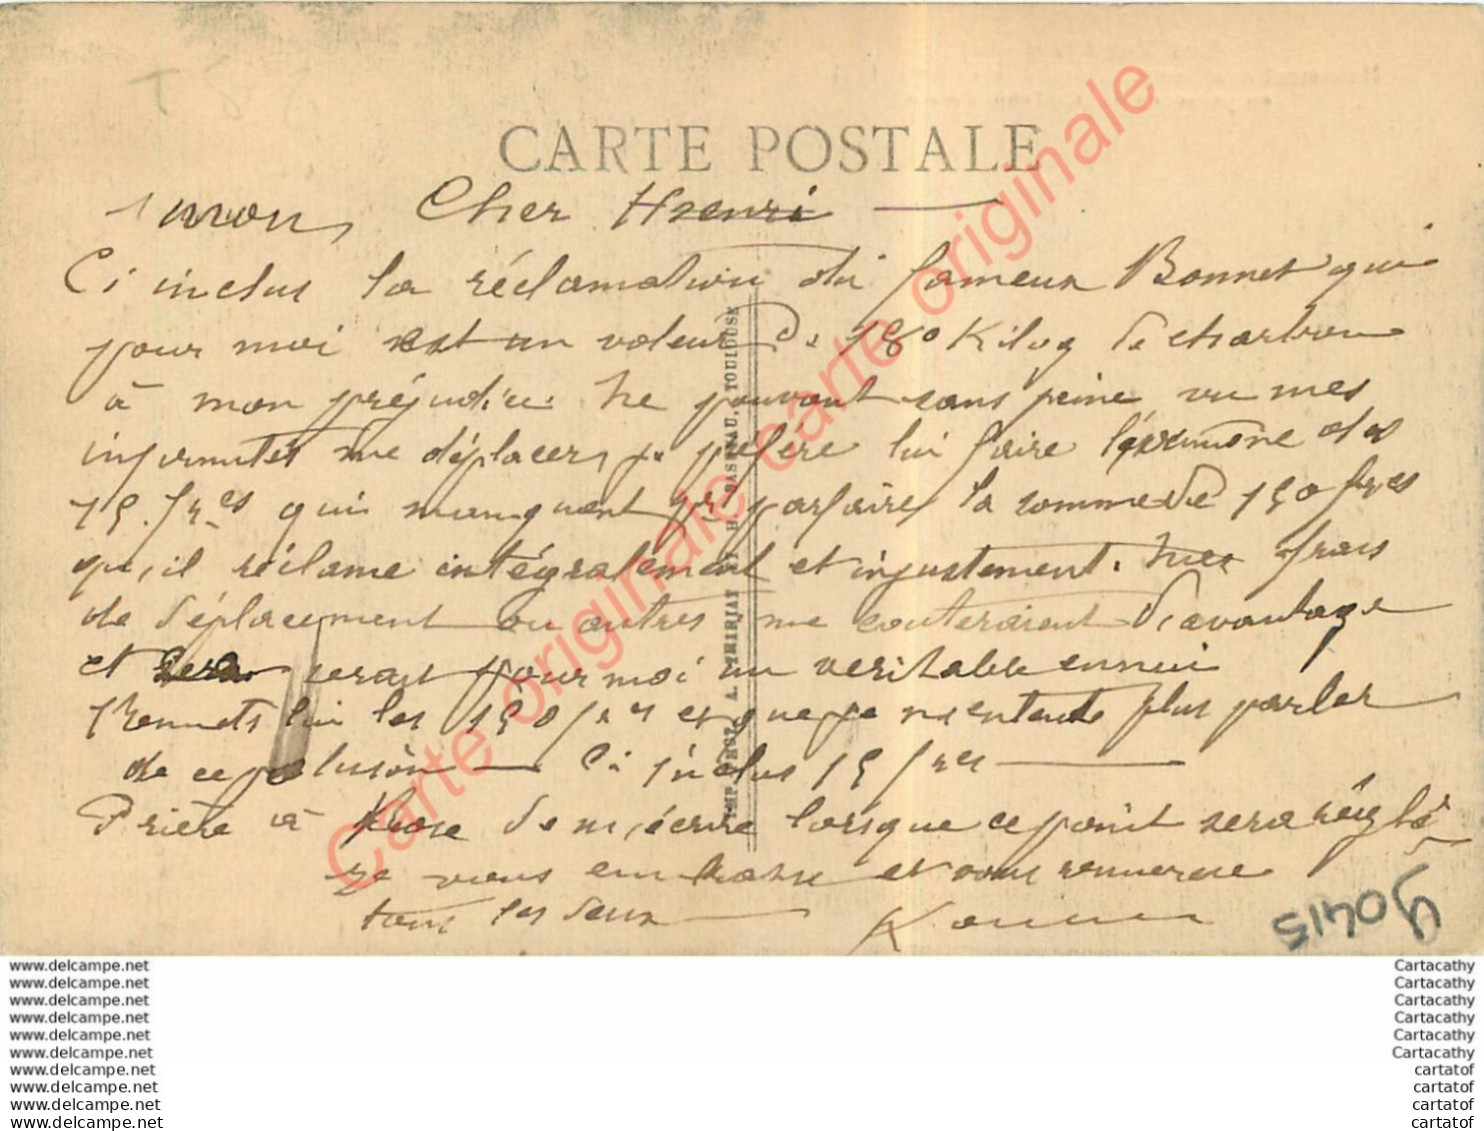 CARTE POSTALE
mon Cher Henri
Ci inclus la réclamation du fameux Bonnet qui
pour moi est un voleur de 180 Kilog de charbon
à mon préjudice. Ne pouvant sans peine vu mes
infirmités me déplacer, je préfère lui faire l'aumône des
15 frcs qui manquent pr parfaire la somme de 150 frcs
qu'il réclame intégralement et injustement. Mes frais
de déplacement ou autres me couteraient d'avantage
et serait pour moi un veritable ennui
Remets lui les 150 frcs et que je n'entende plus parler
de ce polisson — Ci inclus 15 frcs
Prière à Rose de m'écrire lorsque ce point sera réglé
Je vous embrasse et vous remercie
tous les deux
IMP. PHOT. A. THIRIAT ET H. BASUYAU, TOULOUSE
Carte originale carte originale
90415
www.delcampe.net
www.delcampe.net
www.delcampe.net
www.delcampe.net
www.delcampe.net
www.delcampe.net
www.delcampe.net
www.delcampe.net
www.delcampe.net
www.delcampe.net
Cartacathy
Cartacathy
Cartacathy
Cartacathy
Cartacathy
Cartacathy
cartatof
cartatof
cartatof
cartatof